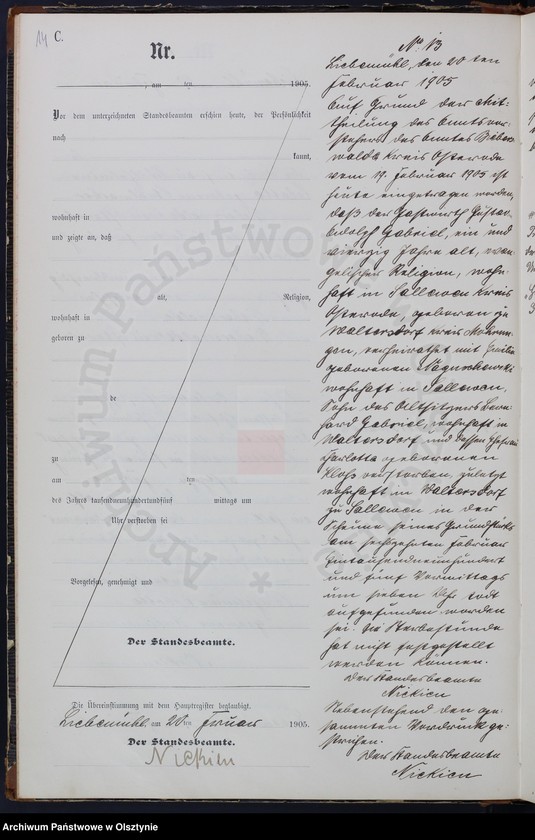 14
C.
Nr.
, am ten 1905.
Vor dem unterzeichneten Standesbeamten erschien heute, der Persönlichkeit
nach
kannt,
wohnhaft in
und zeigte an, daß
alt, Religion,
wohnhaft in
geboren zu
de
zu
am ten
des Jahres tausendneunhundertundfünf mittags um
Uhr verstorben sei
Vorgelesen, genehmigt und
Der Standesbeamte.
Die Übereinstimmung mit dem Hauptregister beglaubigt.
Liebemühl, am 20 ten Februar 1905.
Der Standesbeamte.
Nickien
No 13
Liebemühl, den 20 ten
Februar 1905
Auf Grund der Mit-
theilung des Amtsvor-
stehers des Amtes Biber-
walde Kreis Osterode
vom 19. Februar 1905 ist
heute eingetragen worden,
daß der Gastwirth Gustav
Adolph Gabriel, ein und
vierzig Jahre alt, evan-
gelischer Religion, wohn-
haft in Sallewen Kreis
Osterode, geboren zu
Waltersdorf Kreis Mohrun-
gen, verheirathet mit
geborenen
wohnhaft in Sallewen,
Sohn des Altsitzers Bern-
hard Gabriel, wohnhaft in
Waltersdorf und dessen Ehefrau
Charlotta geborenen
Klohs verstorben, zuletzt
wohnhaft in Waltersdorf
zu Sallewen in der
Scheune seines Grundstücks
am sechszehnten Februar
Eintausendneunhundert
und fünf Vormittags
um sieben Uhr todt
aufgefunden worden
sei. Die Sterbestunde
hat nicht festgestellt
werden können.
Der Standesbeamte
Nickien
Nebenstehend den ge-
sammten Vordruck ge-
strichen.
Der Standesbeamte
Nickien
Archiwum Państwowe
Archiwum Państwowe w Olsztynie